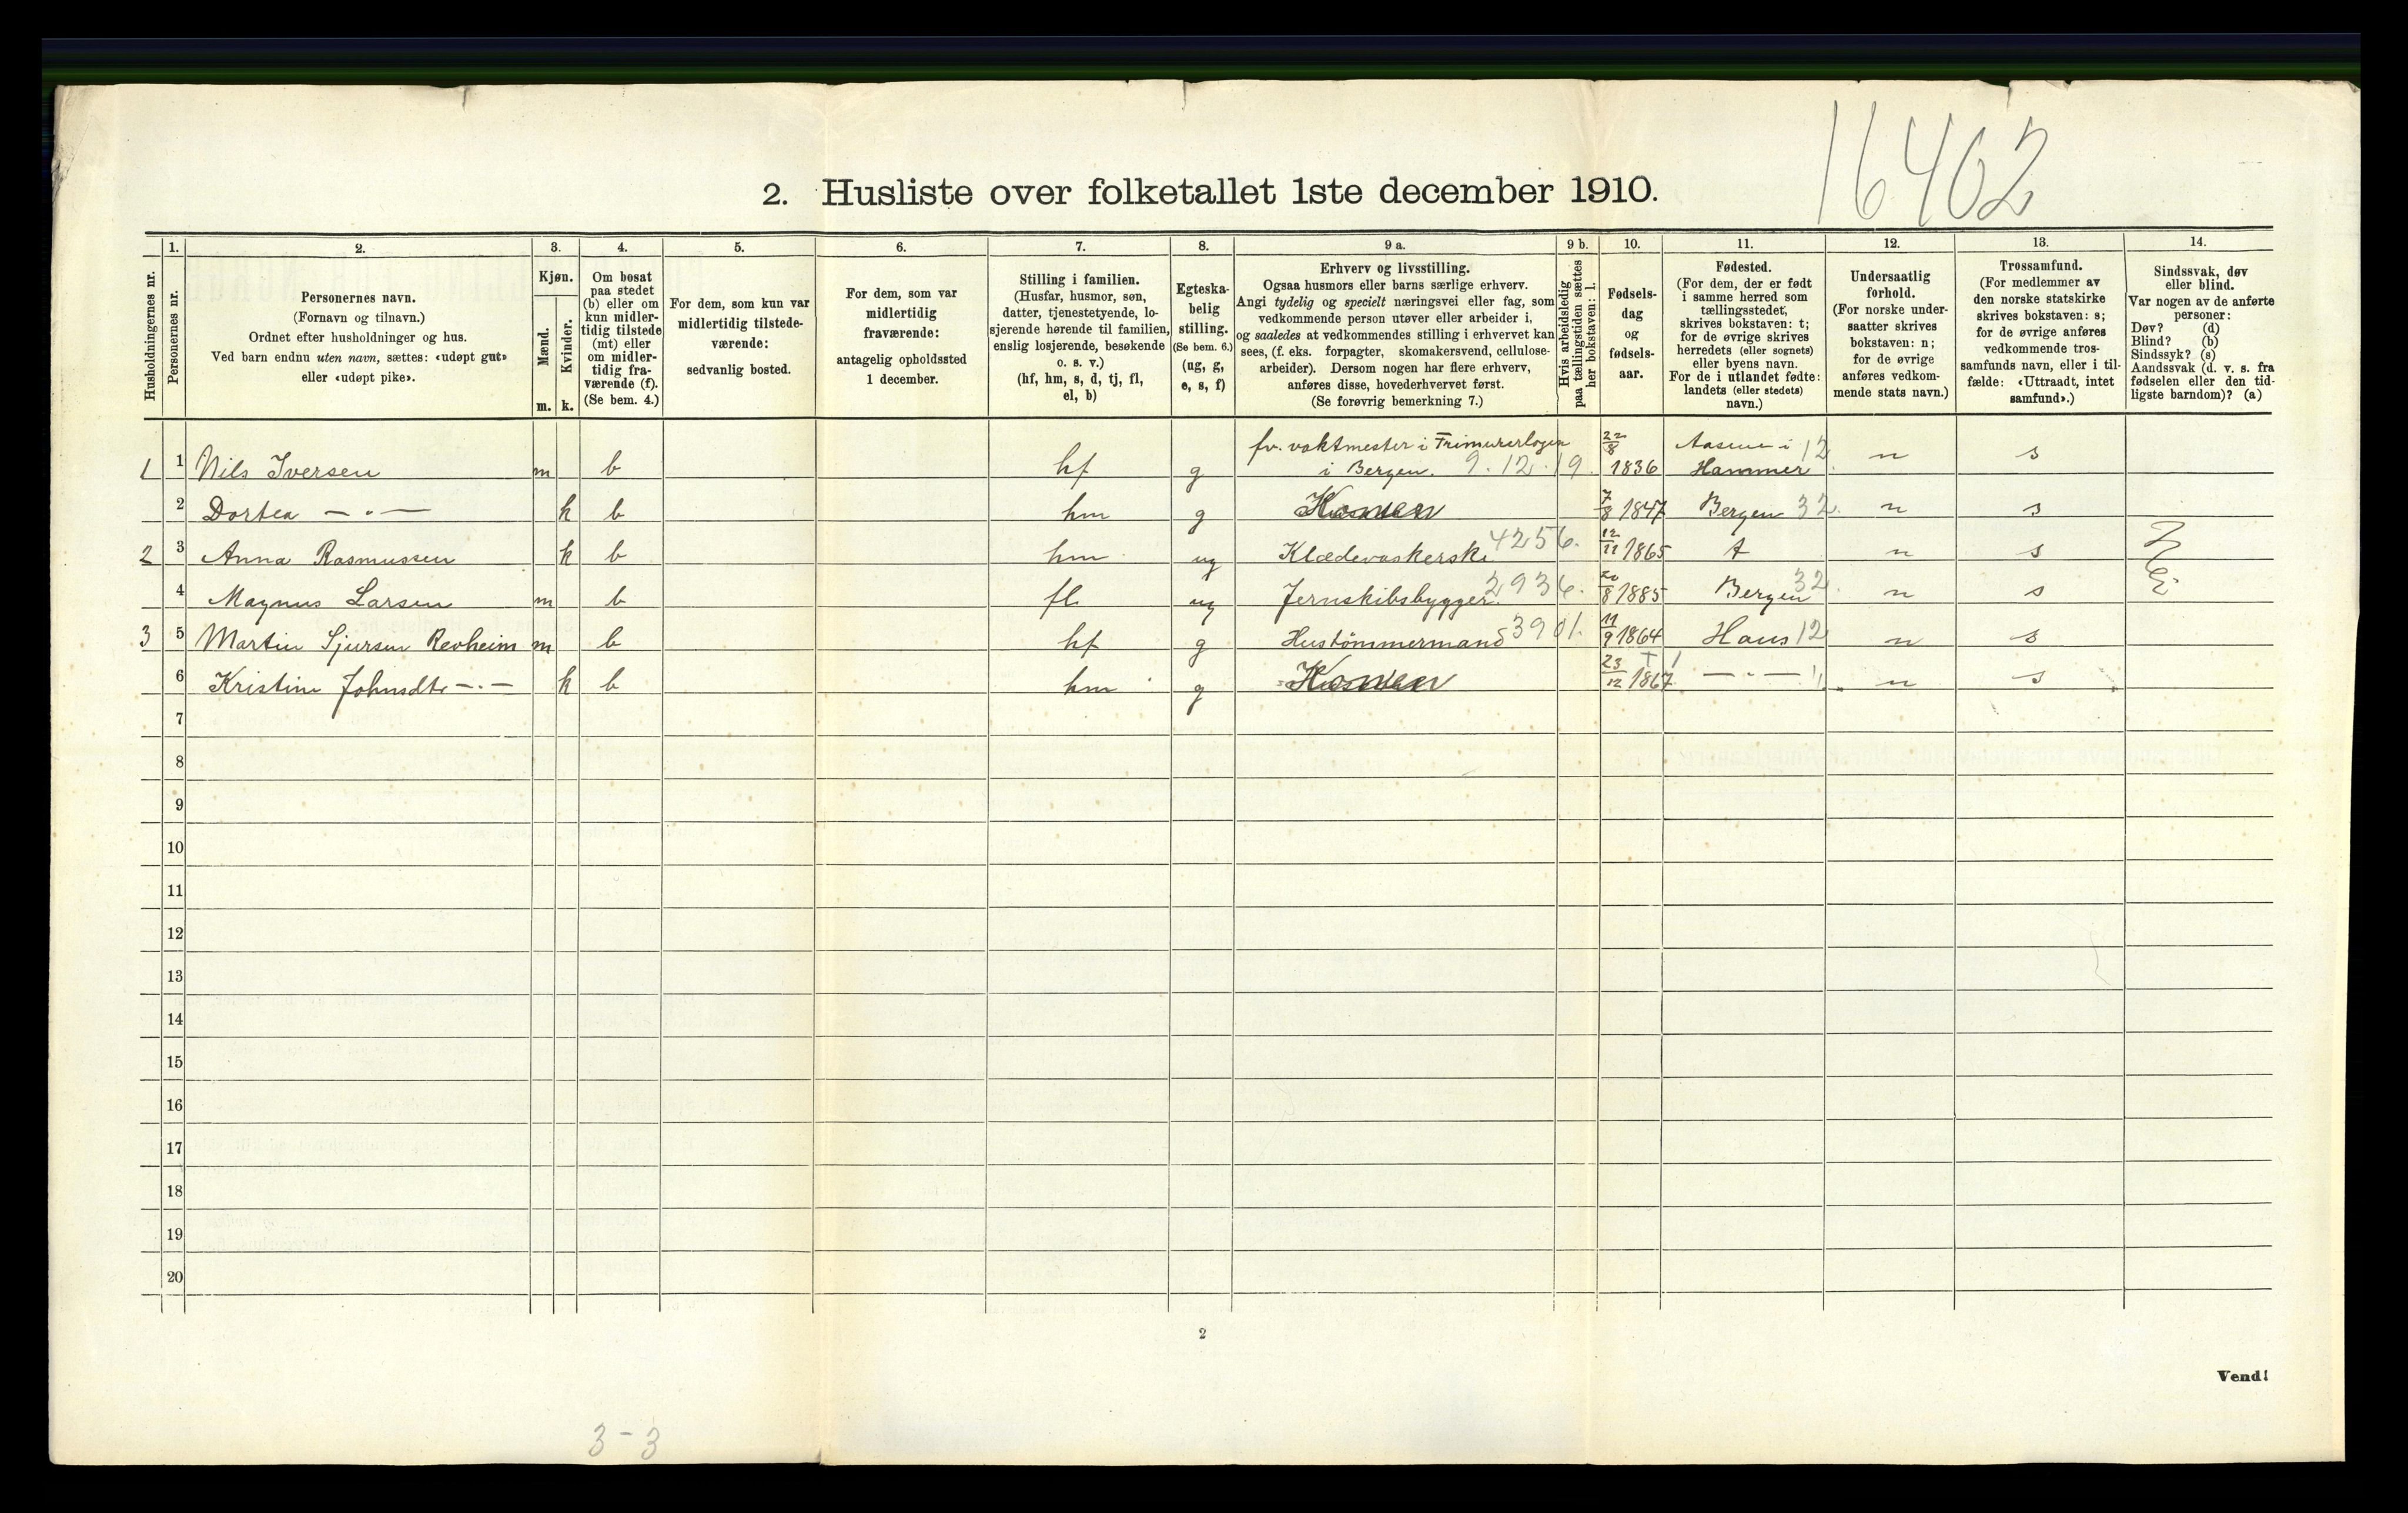 16402
2. Husliste over folketallet 1ste december 1910.
1. 2. 3. 4. 5. 6. 7. 8. 9 a. 9 b. 10. 11. 12. 13. 14.
Husholdningernes nr.
Personernes nr.
Personernes navn.
(Fornavn og tilnavn.)
Ordnet efter husholdninger og hus.
Ved barn endnu uten navn, sættes: «udøpt gut»
eller «udøpt pike».
Kjøn.
Mænd.
Kvinder.
m. k.
Om bosat
paa stedet
(b) eller om
kun midler-
tidig tilstede
(mt) eller
om midler-
tidig fra-
værende (f).
(Se bem. 4.)
For dem, som kun var
midlertidig tilstede-
værende:
sedvanlig bosted.
For dem, som var
midlertidig
fraværende:
antagelig opholdssted
1 december.
Stilling i familien.
(Husfar, husmor, søn,
datter, tjenestetyende, lo-
sjerende hørende til familien,
enslig losjerende, besøkende
o. s. v.)
(hf, hm, s, d, tj, fl,
el, b)
Egteska-
belig
stilling.
(Se bem. 6.)
(ug, g,
e, s, f)
Erhverv og livsstilling.
Ogsaa husmors eller barns særlige erhverv.
Angi tydelig og specielt næringsvei eller fag, som
vedkommende person utøver eller arbeider i,
og saaledes at vedkommendes stilling i erhvervet kan
sees, (f. eks. forpagter, skomakersvend, cellulose-
arbeider). Dersom nogen har flere erhverv,
anføres disse, hovederhvervet først.
(Se forøvrig bemerkning 7.)
Hvis arbeidsledig
paa tællingstiden sættes
her bokstaven: l.
Fødsels-
dag
og
fødsels-
aar.
Fødested.
(For dem, der er født
i samme herred som
tællingsstedet,
skrives bokstaven: t;
for de øvrige skrives
herredets (eller sognets)
eller byens navn.
For de i utlandet fødte:
landets (eller stedets)
navn.)
Undersaatlig
forhold.
(For norske under-
saatter skrives
bokstaven: n;
for de øvrige
anføres vedkom-
mende stats navn.)
Trossamfund.
(For medlemmer av
den norske statskirke
skrives bokstaven: s;
for de øvrige anføres
vedkommende tros-
samfunds navn, eller i til-
fælde: «Uttraadt, intet
samfund».)
Sindssvak, døv
eller blind.
Var nogen av de anførte
personer:
Døv? (d)
Blind? (b)
Sindssyk? (s)
Aandssvak (d. v. s. fra
fødselen eller den tid-
ligste barndom)? (a)
fv. vaktmester i Frimurerlogen 22/8 Aasene i 12
1 1 Nils Iversen m b hf g i Bergen. 9.12.19. 1836 Hammer n s
2 Dortea — „ — k b hm g 7/8 1847 Bergen 32. n s
2 3 Anna Rasmussen k b hm ug Klædevaskerske 4256. 12/11 1865 t n s
4 Magnus Larsen m b fl ug Jernskibsbygger 2936. 20/8 1885 Bergen 32. n s
3 5 Martin Sjursen Revheim m b hf g Hustømmermand 3901. 11/9 1864 Haus 12 n s
6 Kristine Johnsdtr — „ — k b hm g 23/12 1867 — „ — n s
7
8
9
10
11
12
13
14
15
16
17
18
19
20
2
Vend!
3-3